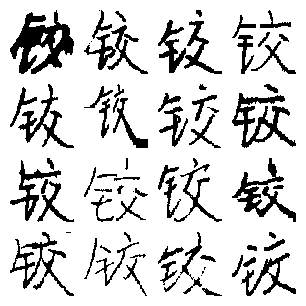 铰铰铰铰
铰铰铰铰
铰铰铰铰
铰铰铰铰